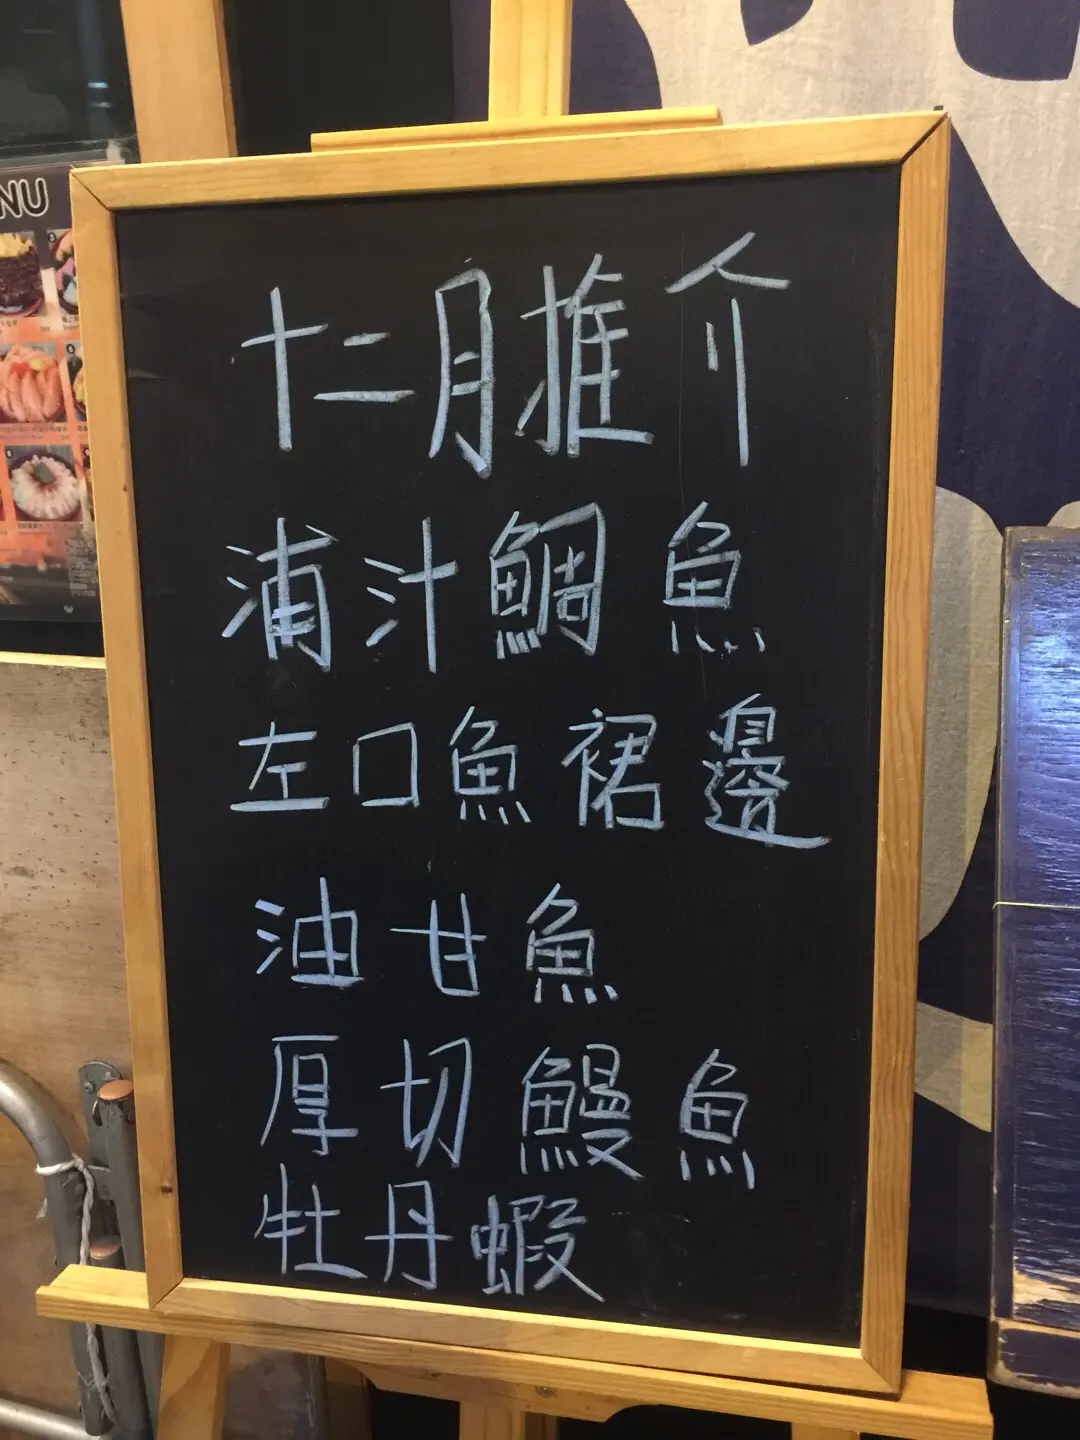 NU
十二月推介
浦汁鯛魚
左口魚裙邊
油甘魚
厚切鰻魚
牡丹蝦